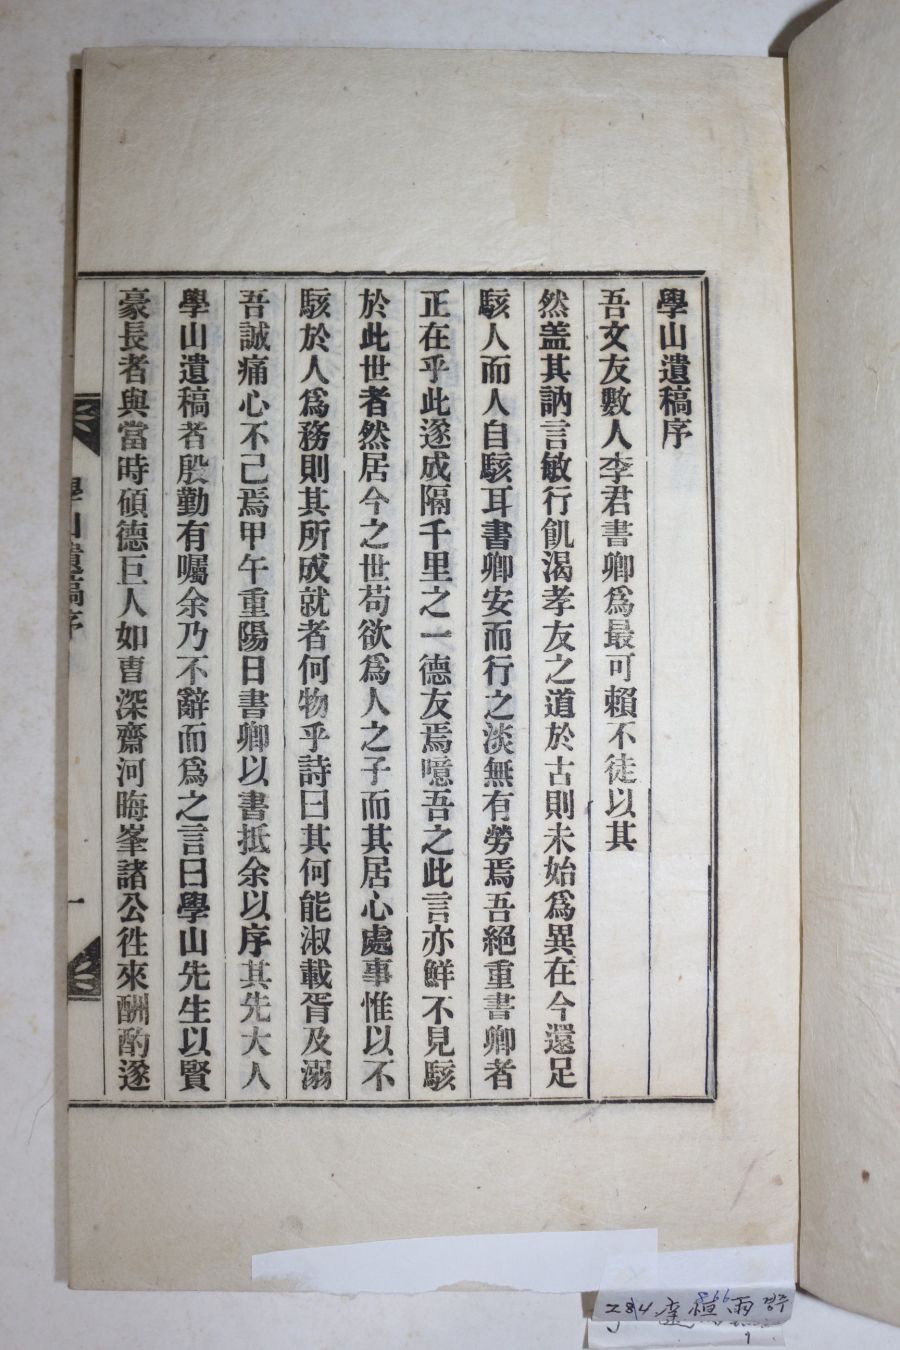 學山遺稿序
吾文友數人李君書卿爲最可賴不徒以其
然盖其訥言敏行飢渴孝友之道於古則未始爲異在今還足
駭人而人自駭耳書卿安而行之淡無有勞焉吾絕重書卿者
正在乎此遂成隔千里之一德友焉噫吾之此言亦鮮不見駭
於此世者然居今之世苟欲爲人之子而其居心處事惟以不
駭於人爲務則其所成就者何物乎詩曰其何能淑載胥及溺
吾誠痛心不已焉甲午重陽日書卿以書抵余以序其先大人
學山遺稿者殷勤有囑余乃不辭而爲之言曰學山先生以賢
豪長者與當時碩德巨人如曺深齋河晦峯諸公徃來酬酌遂
學山遺稿序
一